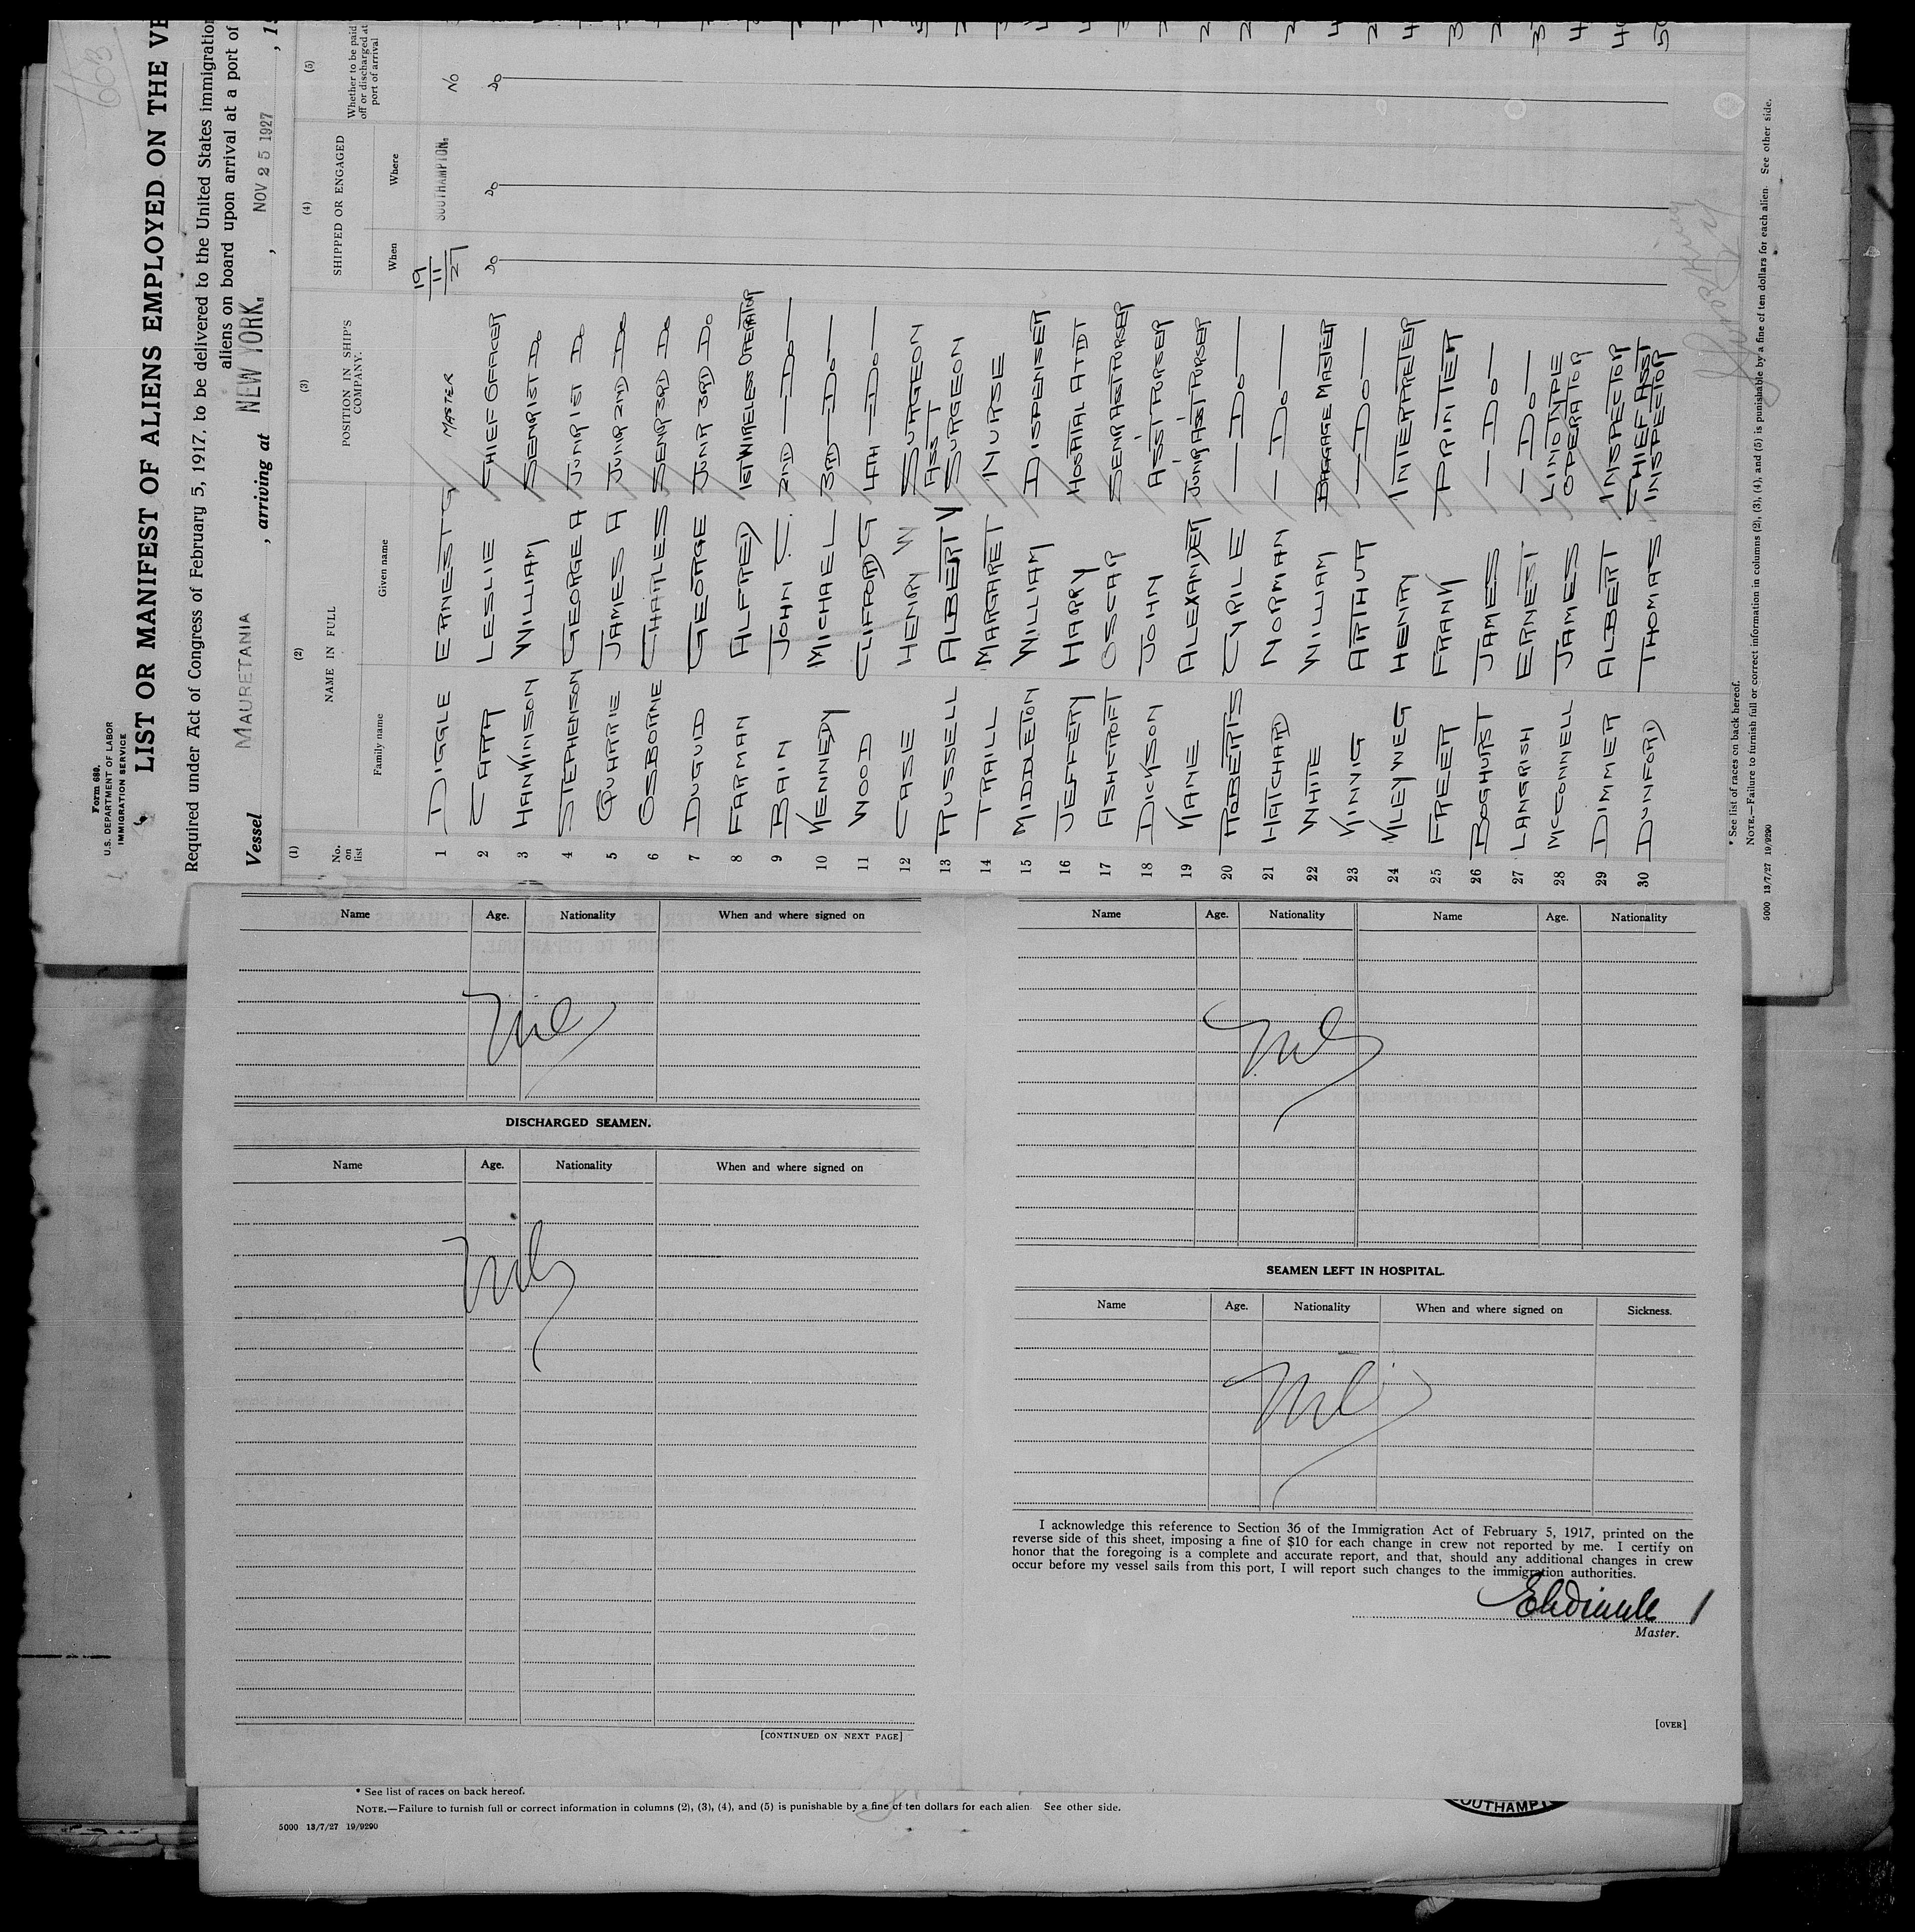 Form 680.
U.S. DEPARTMENT OF LABOR
IMMIGRATION SERVICE
LIST OR MANIFEST OF ALIENS EMPLOYED ON THE VE
Required under Act of Congress of February 5, 1917, to be delivered to the United States immigration
aliens on board upon arrival at a port of
Vessel MAURETANIA, arriving at NEW YORK., NOV 25 1927, 1
(1) (2) (3) (4) (5)
No. on list NAME IN FULL POSITION IN SHIP'S COMPANY. SHIPPED OR ENGAGED Whether to be paid off or discharged at port of arrival
Family name Given name When Where
1 DIGGLE ERNEST G MASTER 19/11/27 SOUTHAMPTON. No
2 CARR LESLIE CHIEF OFFICER Do Do Do
3 HANKINSON WILLIAM SENR 1ST Do
4 STEPHENSON GEORGE A JUNR 1ST Do
5 QUARRIE JAMES A JUNR 2ND Do
6 OSBORNE CHARLES SENR 3RD Do
7 DUGUID GEORGE JUNR 3RD Do
8 FARMAN ALFRED 1ST WIRELESS OPERATOR
9 BAIN JOHN C. 2ND — Do —
10 KENNEDY MICHAEL 3RD — Do —
11 WOOD CLIFFORD G 4TH — Do —
12 CASE HENRY W SURGEON
13 RUSSELL ALBERT V ASST SURGEON
14 TRAILL MARGARET NURSE
15 MIDDLETON WILLIAM DISPENSER
16 JEFFERY HARRY HOSPITAL ATTDT
17 ASHCROFT OSCAR SENR ASST PURSER
18 DICKSON JOHN ASST PURSER
19 KANE ALEXANDER JUNR ASST PURSER
20 ROBERTS CYRIL E — Do —
21 HATCHARD NORMAN — Do —
22 WHITE WILLIAM BAGGAGE MASTER
23 KINNIG ARTHUR — Do —
24 KLEYWEG HENRY INTERPRETER
25 FREER FRANK PRINTER
26 BOGHURST JAMES — Do —
27 LANGRISH ERNEST — Do —
28 McCONNELL JAMES LINOTYPE OPERATOR
29 DIMMER ALBERT INSPECTOR
30 DUNFORD THOMAS CHIEF ASST INSPECTOR
* See list of races on back hereof.
NOTE.—Failure to furnish full or correct information in columns (2), (3), (4), and (5) is punishable by a fine of ten dollars for each alien. See other side.
5000 13/7/27 19/9290
Name Age. Nationality When and where signed on
Nil
DISCHARGED SEAMEN.
Name Age. Nationality When and where signed on
Nil
[CONTINUED ON NEXT PAGE]
Name Age. Nationality Name Age. Nationality
Nil
SEAMEN LEFT IN HOSPITAL.
Name Age. Nationality When and where signed on Sickness.
Nil
I acknowledge this reference to Section 36 of the Immigration Act of February 5, 1917, printed on the
reverse side of this sheet, imposing a fine of $10 for each change in crew not reported by me. I certify on
honor that the foregoing is a complete and accurate report, and that, should any additional changes in crew
occur before my vessel sails from this port, I will report such changes to the immigration authorities.
Master.
[OVER]
* See list of races on back hereof.
NOTE.—Failure to furnish full or correct information in columns (2), (3), (4), and (5) is punishable by a fine of ten dollars for each alien See other side.
5000 13/7/27 19/9290
OUTHAMPT